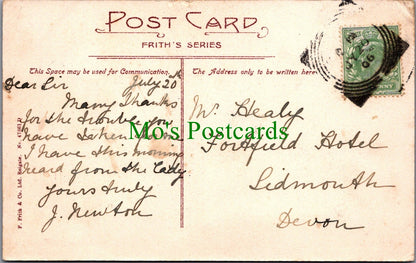 POST CARD
FRITH'S SERIES
This Space may be used for Communication.
The Address only to be written here
July 20th
Dear Sir
Many Thanks
for the trouble you
have taken
I have this morning
heard from the Lady
Yours truly
J. Newton
Mr Healy
Fortfield Hotel
Sidmouth
Devon
Mo's Postcards
F. Frith & Co. Ltd. Reigate.